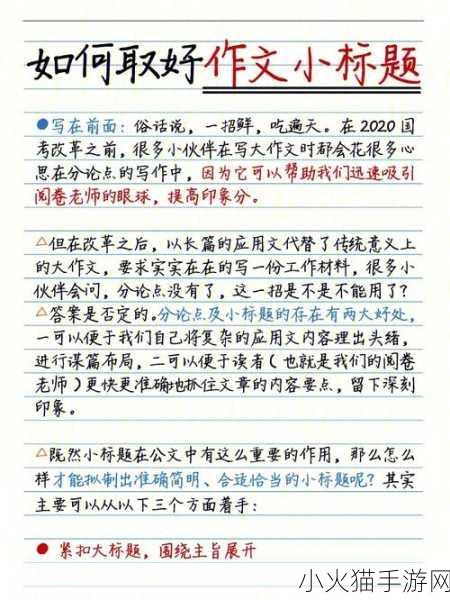 如何取好作文小标题
●写在前面：俗话说，一招鲜，吃遍天。在2020国
考改革之前，很多小伙伴在写大作文时都会花很多心
思在分论点的写作中，因为它可以帮助我们迅速吸引
阅卷老师的眼球，提高印象分。
△但在改革之后，以长篇的应用文代替了传统意义上
的大作文，要求实实在在的写一份工作材料，很多小
伙伴会问，分论点没有了，这一招是不是不能用了？
△答案是否定的。分论点及小标题的存在有两大好处，
一可以便于我们自己将复杂的应用文内容理出头绪，
进行谋篇布局，二可以便于读者（也就是我们的阅卷
老师）更快更准确地抓住文章的内容要点，留下深刻
印象。
△既然小标题在公文中有这么重要的作用，那么怎么
样才能拟制出准确简明、合适恰当的小标题呢？其实
主要可以从以下三个方面着手：
● 紧扣大标题，围绕主旨展开
小火猫手游网